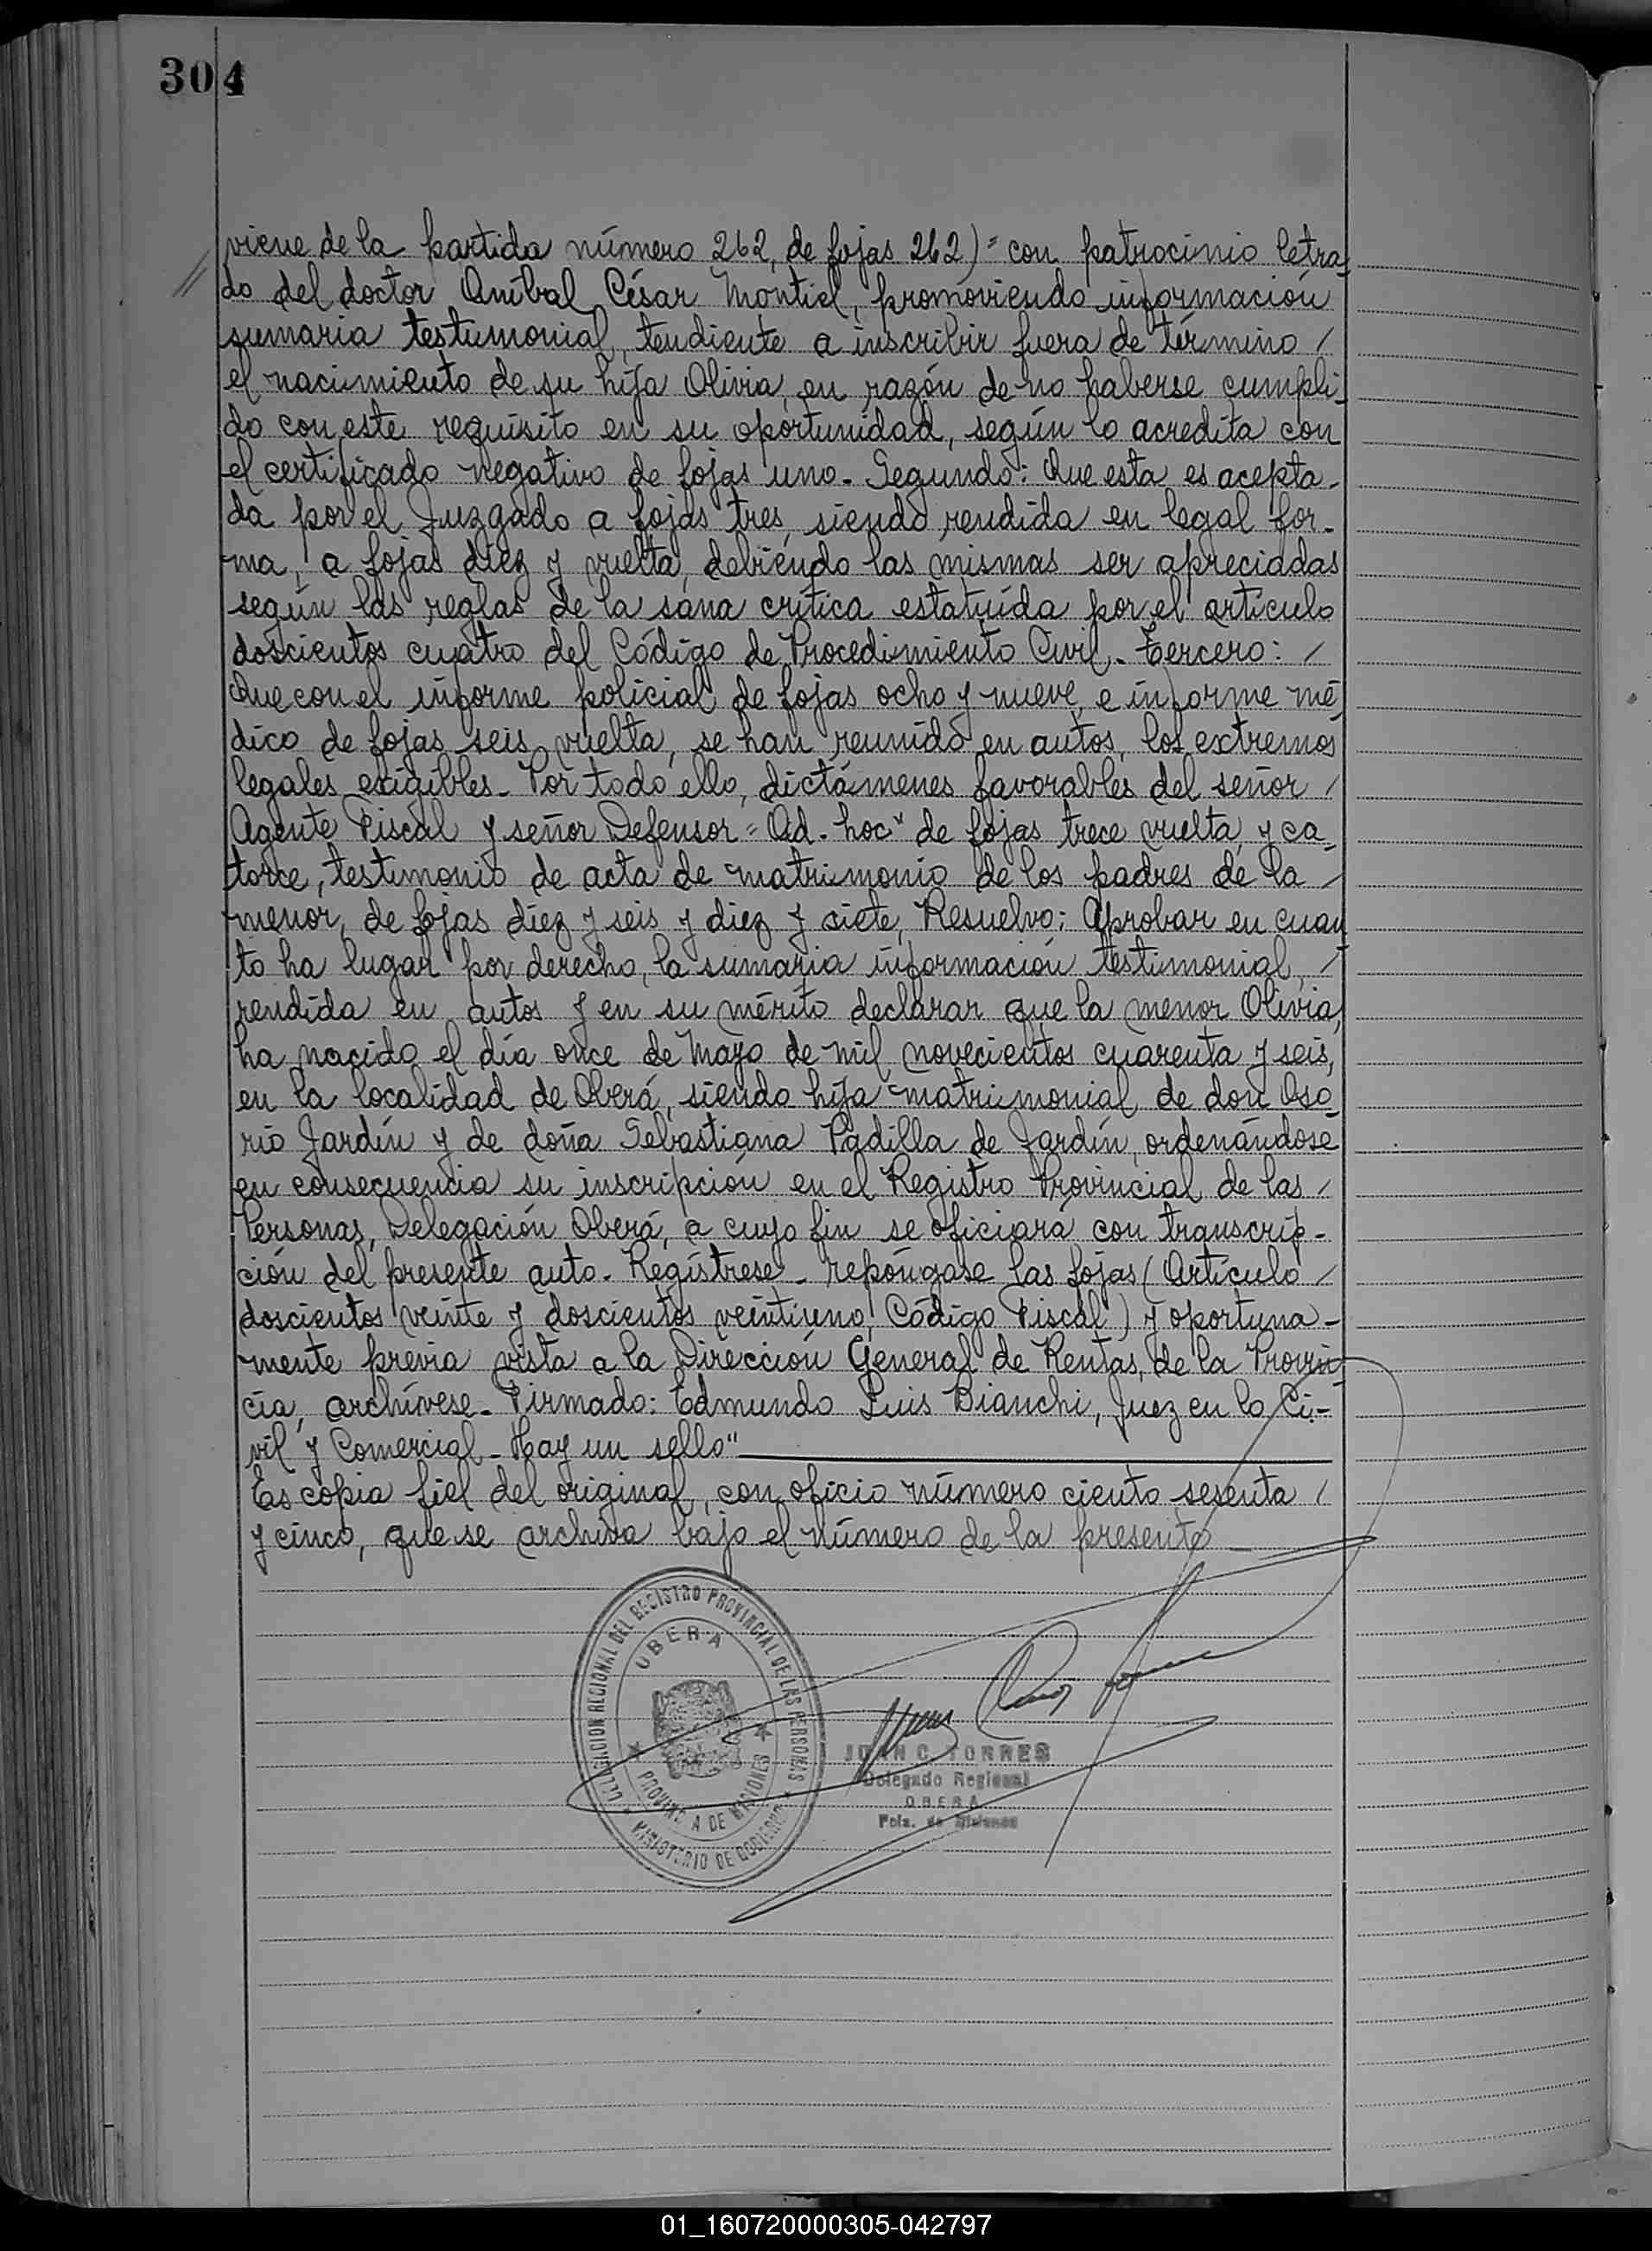 304
viene de la partida número 262, de fojas 262)= con patrocinio letra-
// do del doctor Aníbal César Montiel, promoviendo información
sumaria testimonial, tendiente a inscribir fuera de término /
el nacimiento de su hija Olivia, en razón de no haberse cumpli-
do con este requisito en su oportunidad, según lo acredita con
el certificado negativo de fojas uno.- Segundo: Que esta es acepta-
da por el Juzgado a fojas tres, siendo rendida en legal for-
ma, a fojas diez y vuelta, debiendo las mismas ser apreciadas
según las reglas de la sana crítica estatuída por el artículo
doscientos cuatro del Código de Procedimiento Civil.- Tercero: /
Que con el informe policial de fojas ocho y nueve, e informe mé-
dico de fojas seis vuelta, se han reunido en autos, los extremos
legales exigibles.- Por todo ello, dictámenes favorables del señor /
Agente Fiscal y señor Defensor = Ad-hoc" de fojas trece vuelta, y ca-
torce, testimonio de acta de matrimonio de los padres de la /
menor, de fojas diez y seis y diez y siete, Resuelvo: Aprobar en cuan
to ha lugar por derecho, la sumaria información testimonial, /
rendida en autos y en su mérito declarar que la menor Olivia,
ha nacido el día once de Mayo de mil novecientos cuarenta y seis,
en la localidad de Oberá, siendo hija matrimonial de don Oso-
rio Jardín y de doña Sebastiana Padilla de Jardín, ordenándose
en consecuencia su inscripción en el Registro Provincial de las /
Personas, Delegación Oberá, a cuyo fin se oficiará con transcrip-
ción del presente auto.- Regístrese.- repóngase las fojas (Artículo /
doscientos veinte y doscientos veintiuno, Código Fiscal) y oportuna-
mente previa vista a la Dirección General de Rentas, de la Provin-
cia, archívese.- Firmado: Edmundo Luis Bianchi, Juez en lo Ci-
vil y Comercial.- Hay un sello"
Es copia fiel del original, con oficio número ciento sesenta /
y cinco, que se archiva bajo el número de la presente
DELEGACION REGIONAL DEL REGISTRO PROVINCIAL DE LAS PERSONAS
OBERA
PROVINCIA DE MISIONES
MINISTERIO DE GOBIERNO
JUAN C. TORRES
Delegado Regional
OBERA
Pcia. de Misiones
01_160720000305-042797